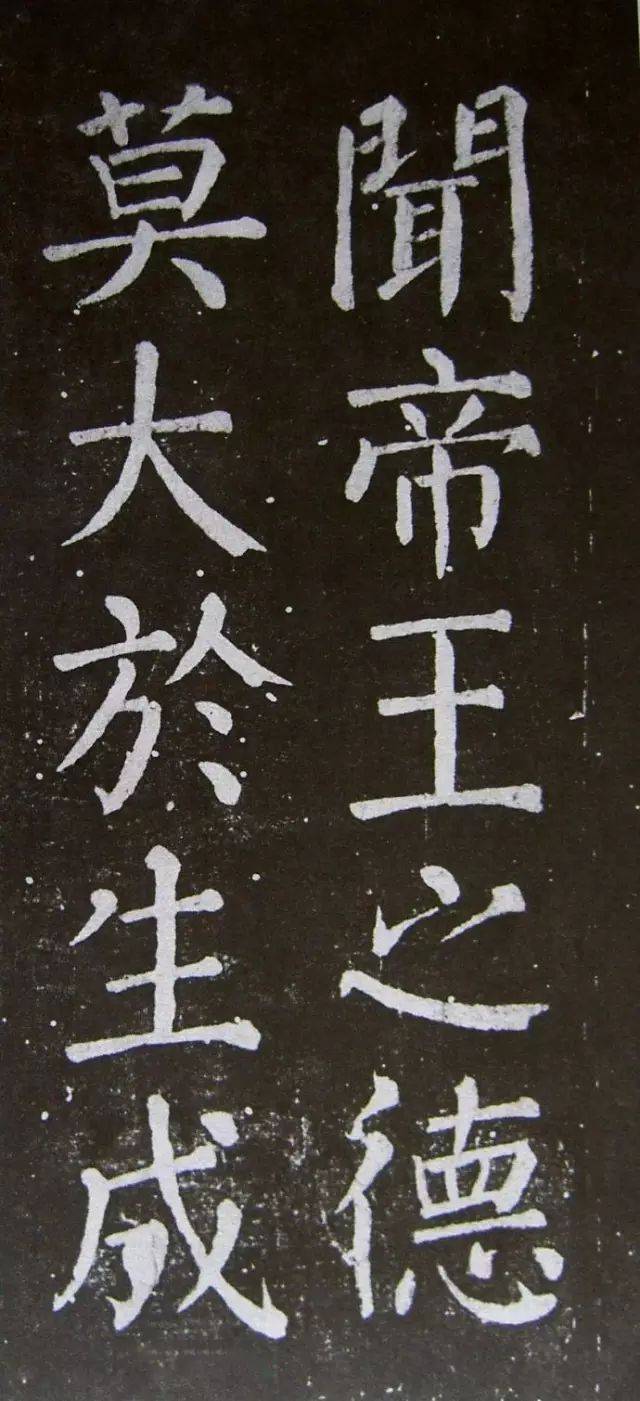 聞帝王之德
莫大於生成